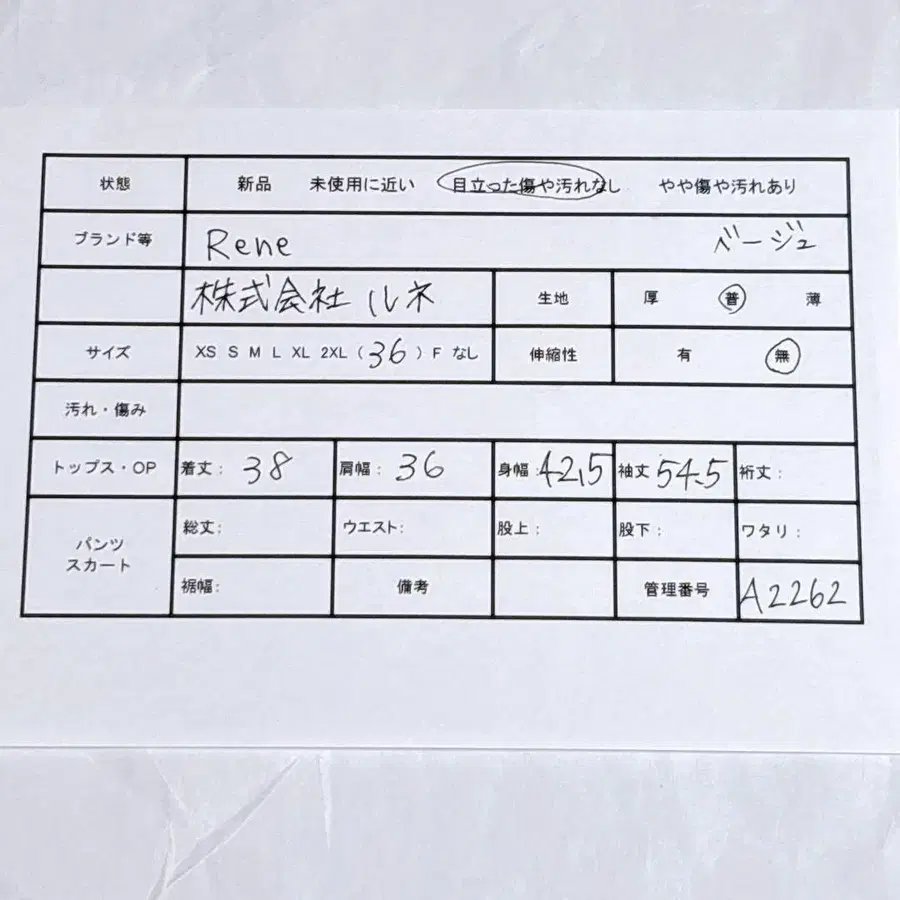 状態 新品 未使用に近い 目立った傷や汚れなし やや傷や汚れあり
ブランド等 Rene ベージュ
株式会社ルネ 生地 厚 普 薄
サイズ XS S M L XL 2XL (36) F なし 伸縮性 有 無
汚れ・傷み
トップス・OP 着丈: 38 肩幅: 36 身幅: 42,5 袖丈 54.5 裄丈:
パンツ スカート 総丈: ウエスト: 股上: 股下: ワタリ:
裾幅: 備考 管理番号 A2262